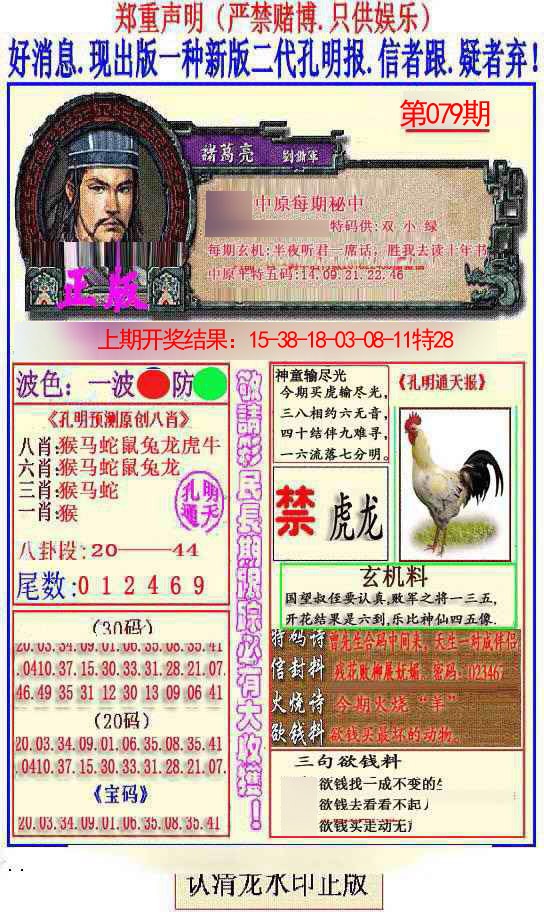 郑重声明（严禁赌博.只供娱乐）
好消息.现出版一种新版二代孔明报.信者跟.疑者弃!
第079期
諸葛亮 劉備軍
中原每期秘中
特码供:双 小 绿
每期玄机:半夜听君一席话，胜我去读十年书
中原平特五码:14.09.21.22.46
正版
上期开奖结果：15-38-18-03-08-11特28
波色：一波 防
《孔明预测原创八肖》
八肖:猴马蛇鼠兔龙虎牛
六肖:猴马蛇鼠兔龙
三肖:猴马蛇
一肖:猴
孔明
通天
八卦段:20——44
尾数:0 1 2 4 6 9
(30码)
20.03.34.09.01.06.35.08.35.41
.0410.37.15.30.33.31.28.21.07.
46.49.35 31 12 30 13 09 06 41
(20码)
20.03.34.09.01.06.35.08.35.41
.0410.37.15.30.33.31.28.21.07.
《宝码》
20.03.34.09.01.06.35.08.35.41
敬請彩民長期跟踪必有大收獲！
神童输尽光
今期买虎输尽光,
三八相约六无音,
四十结伴九难寻,
一六流落七分明。
《孔明通天报》
禁 虎龙
玄机料
国望叔侄要认真,败军之将一三五,
开花结果是六到,乐比神仙四五像.
特码诗 曾先生合码中间来，天生一对成伴侣
信封料 残花败柳展妩媚. 密码: 023467
火烧诗 今期火烧“羊”
欲钱料 欲钱买最坏的动物。
三句欲钱料
欲钱找一成不变的
欲钱去看看不起
欲钱买走动无
认清龙水印正版